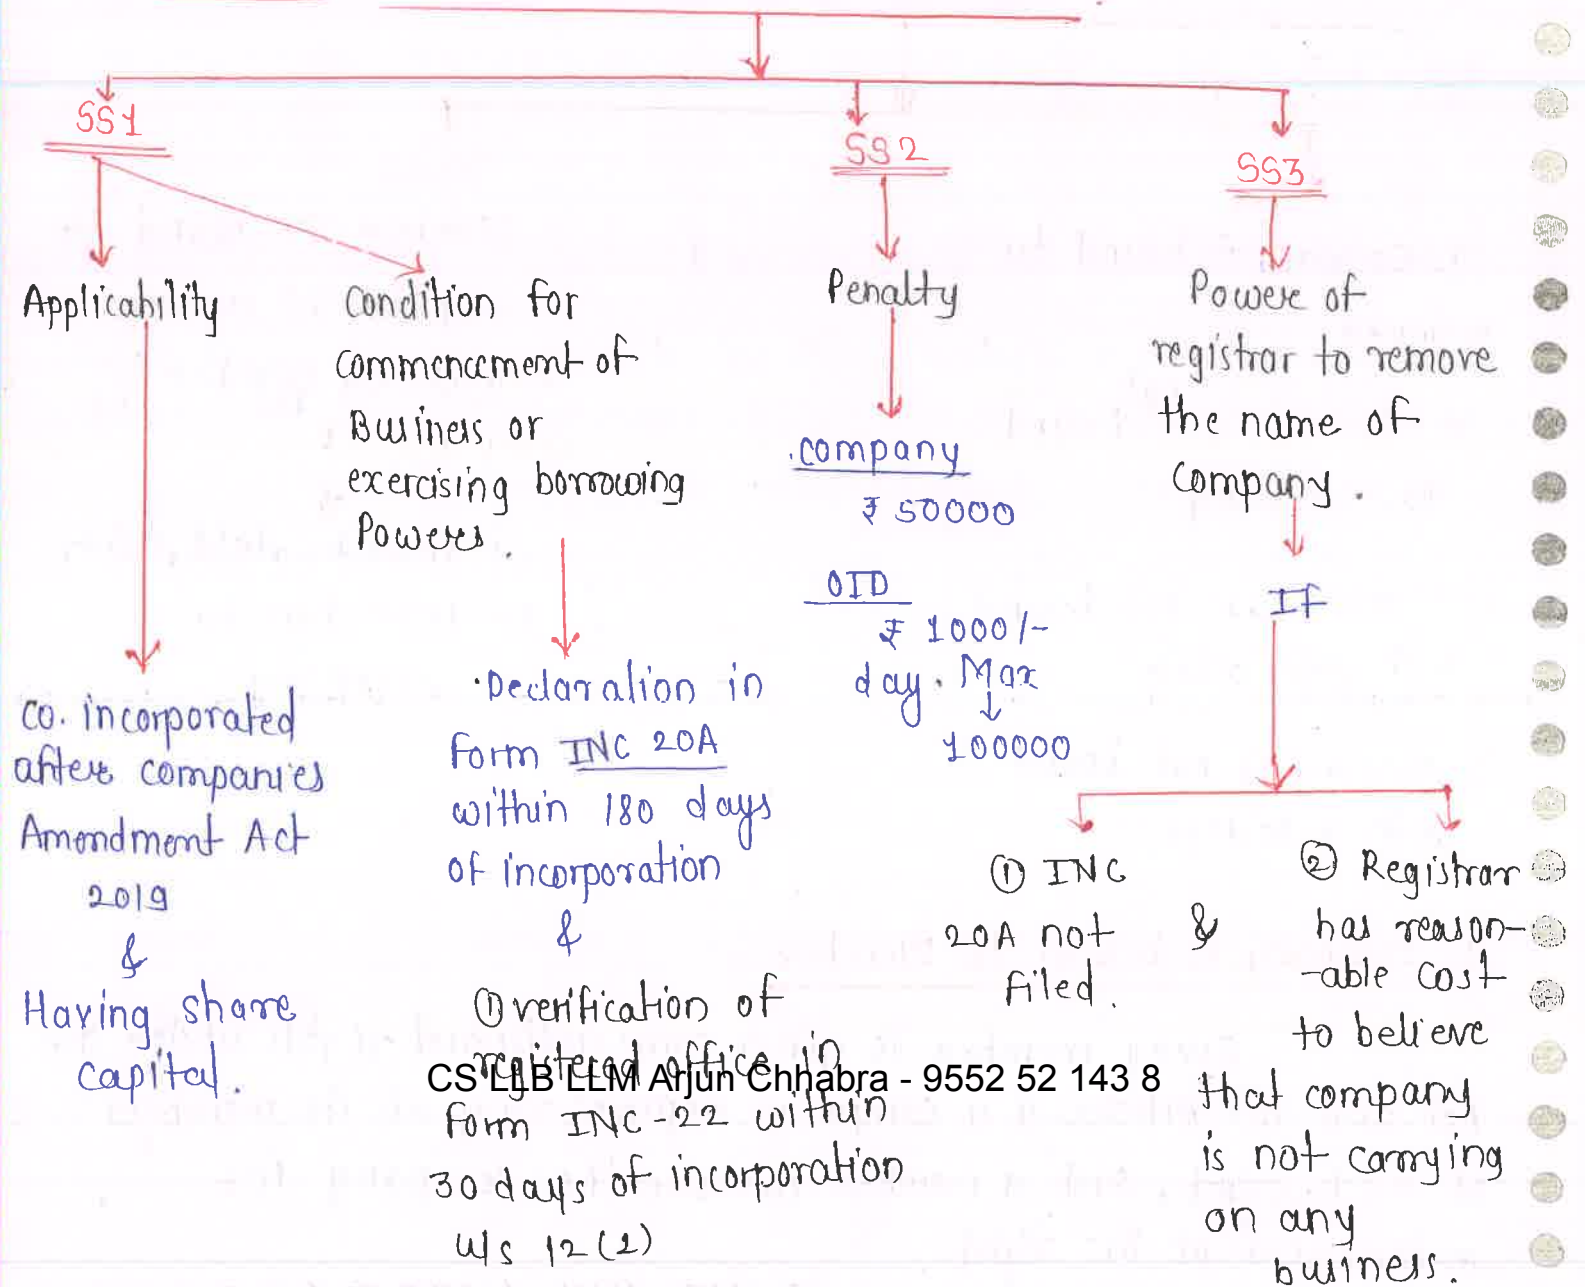 SS1
Applicability
co. incorporated
after companies
Amendment Act
2019
&
Having share
capital.
condition for
commencement of
Business or
exercising borrowing
Powers.
Declaration in
form INC 20A
within 180 days
of incorporation
&
① verification of
registered office in
form INC-22 within
30 days of incorporation
u/s 12(2)
SS2
Penalty
company
₹ 50000
OID
₹ 1000/-
day. Max
100000
SS3
Power of
registrar to remove
the name of
company.
If
① INC
20A not
filed.
&
② Registrar
has reason-
-able cost
to believe
that company
is not carrying
on any
business.
CS LLB LLM Arjun Chhabra - 9552 52 143 8